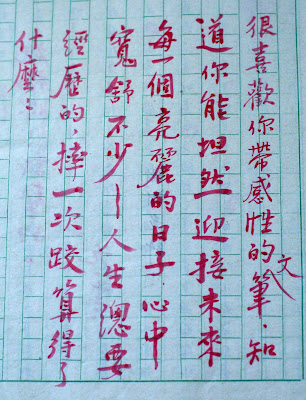 很喜歡你帶感性的文筆,知
道你能坦然迎接未來
每一個亮麗的日子,心中
寬舒不少—人生總要
經歷的,摔一次跤算得了
什麼: